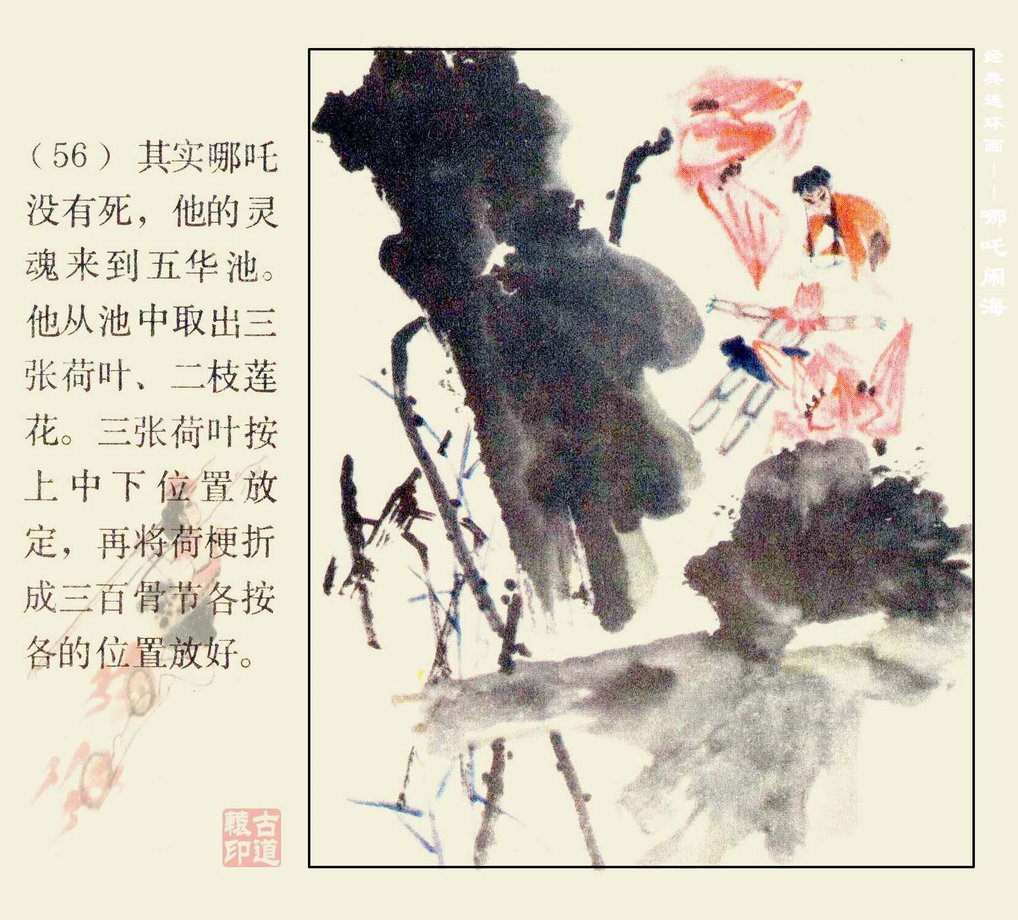 （56）其实哪吒
没有死，他的灵
魂来到五华池。
他从池中取出三
张荷叶、二枝莲
花。三张荷叶按
上中下位置放
定，再将荷梗折
成三百骨节各按
各的位置放好。
经典连环画——哪吒闹海
古道
辕印